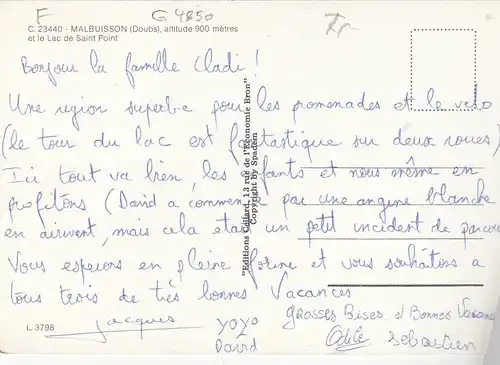 F
G 4850
C. 23440 - MALBUISSON (Doubs), altitude 900 mètres
et le Lac de Saint Point
Bonjour la famille Cladi !
Une region superbe pour les promenades et le velo
(le tour du lac est fantastique sur deux roues)
Ici tout va bien, les enfants et nous même en
profitons (David a commencé par une angine blanche
en arrivent, mais cela etait un petit incident de parcou
Vous esperons en pleine forme et vous souhaitons a
tous trois de très bonnes Vacances
"Editions Cellard, 13 rue de l'Economie Bron"
Copyright by Spadem
L 3798
Jacques
yoyo
David
Grosses Bises et Bonnes Vacances
Odile
Sebastien